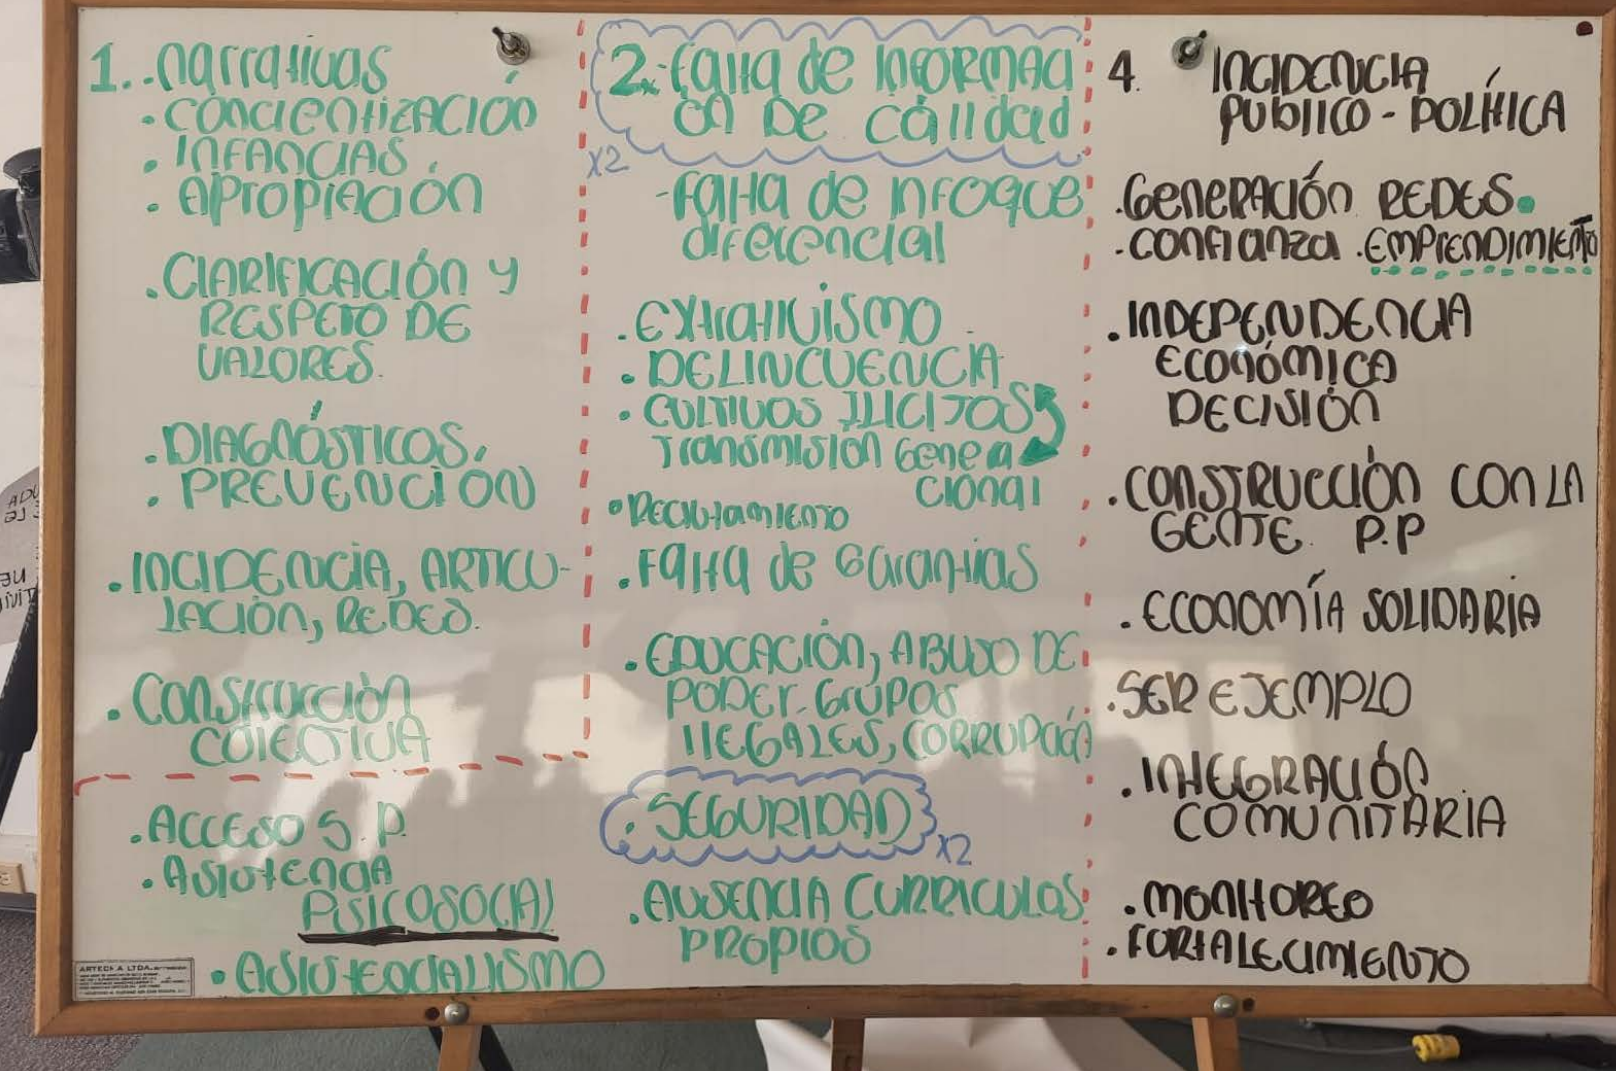 1. .narrativas
. concientización
. INFANCIAS.
. Apropiación
. Clarificación y
RESPETO DE
VALORES.
. DIAGNÓSTICOS.
. PREVENCIÓN
. INCIDENCIA, ARTICU-
LACIÓN, REDES.
. Construcción
colectiva
. ACCESO S.P.
. Asistencia
PSICOSOCIAL
. Asistecialismo
2. Falta de INFORMACI
ón De calidad
x2
- Falta de nfoque
diferencial
. extrativismo
. DELINCUENCIA
. CULTIVOS ILICITOS
Transmisión Genera
cional
. Reclutamiento
. Falta de Garantias
. EDUCACIÓN, ABUSO DE
PODER. Grupos
IlEGALES, CORRUPCIÓN
. SEGURIDAD
x2
. AUSENCIA CURRICULOS
PROPIOS
4. INCIDENCIA
publico - POLÍTICA
. GENERACIÓN REDES.
. Confianza . EMPRENDIMIENTO
. INDEPENDENCIA
ECONÓMICA
DECISIÓN
. CONSTRUCCIÓN CON LA
GENTE. P.P
. ECONOMÍA SOLIDARIA
. SER EJEMPLO
. INTEGRACIÓN
COMUNITARIA
. MONITOREO
. FORTALECIMIENTO
ARTECMA LTDA.